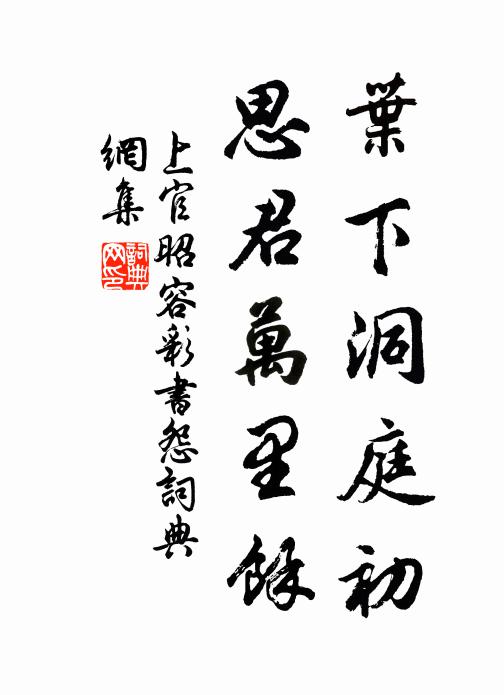 葉下洞庭初
思君萬里餘
上官昭容彩書怨詞典
網集
詞典
网印